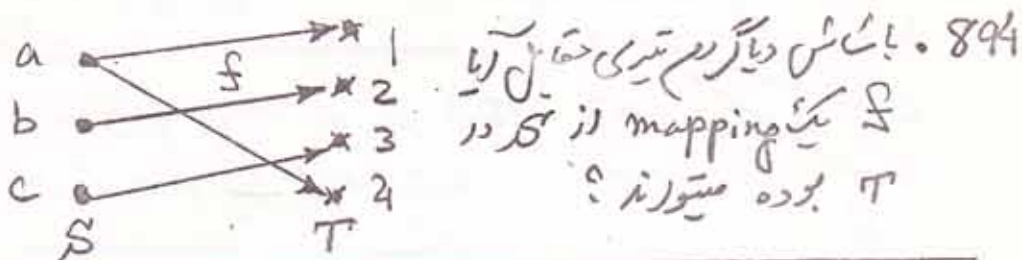 894. با شناس دیاگرام تیری مقابل آیا
f یک mapping از S در
T بوده میتواند؟
a
b
c
S
f
1
2
3
4
T